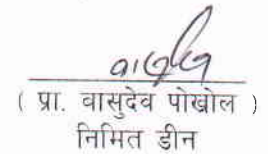 ( प्रा. वासुदेव पोखोल )
निमित डीन